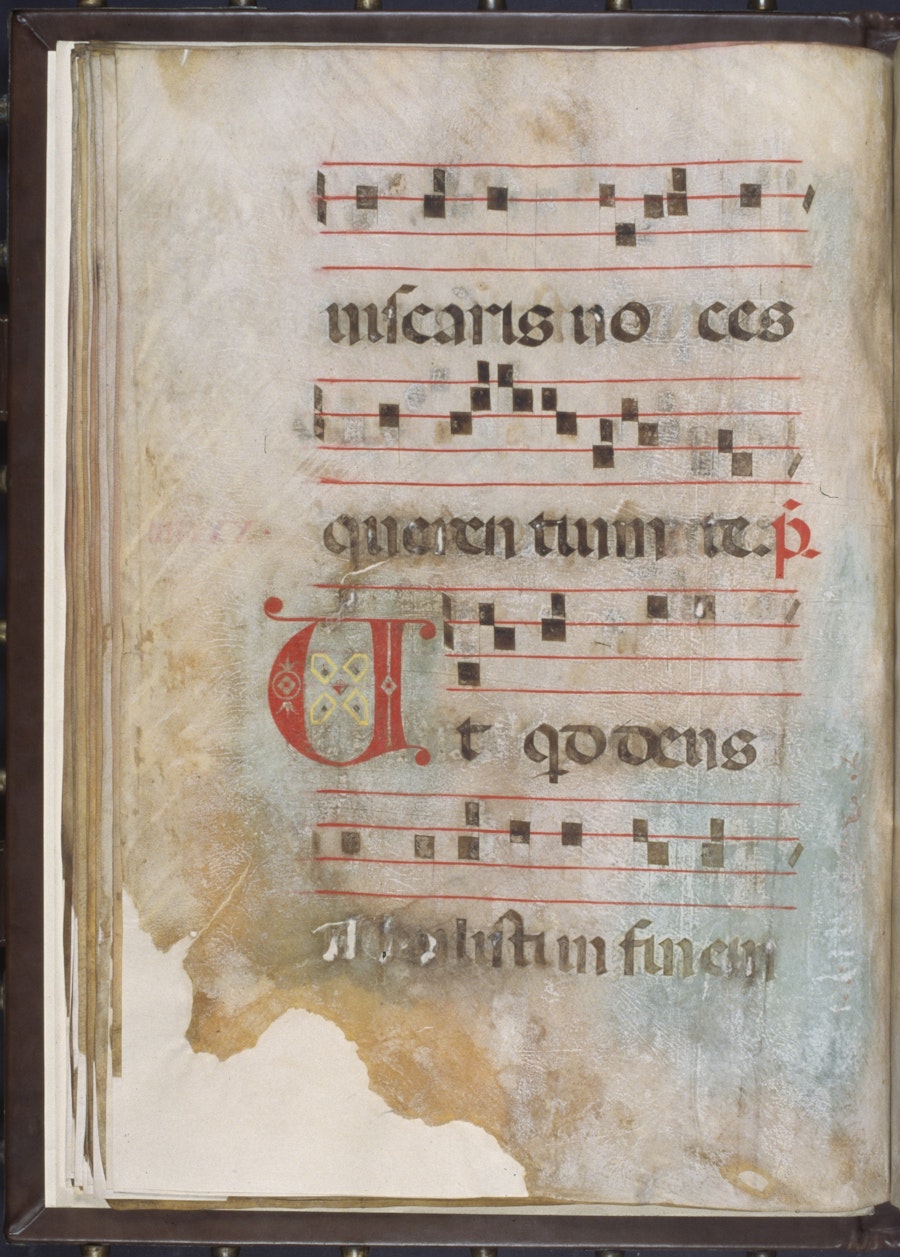 uiſcaris uo ces
queren tium te. p̃.
Ut qd deus
liſti in finem